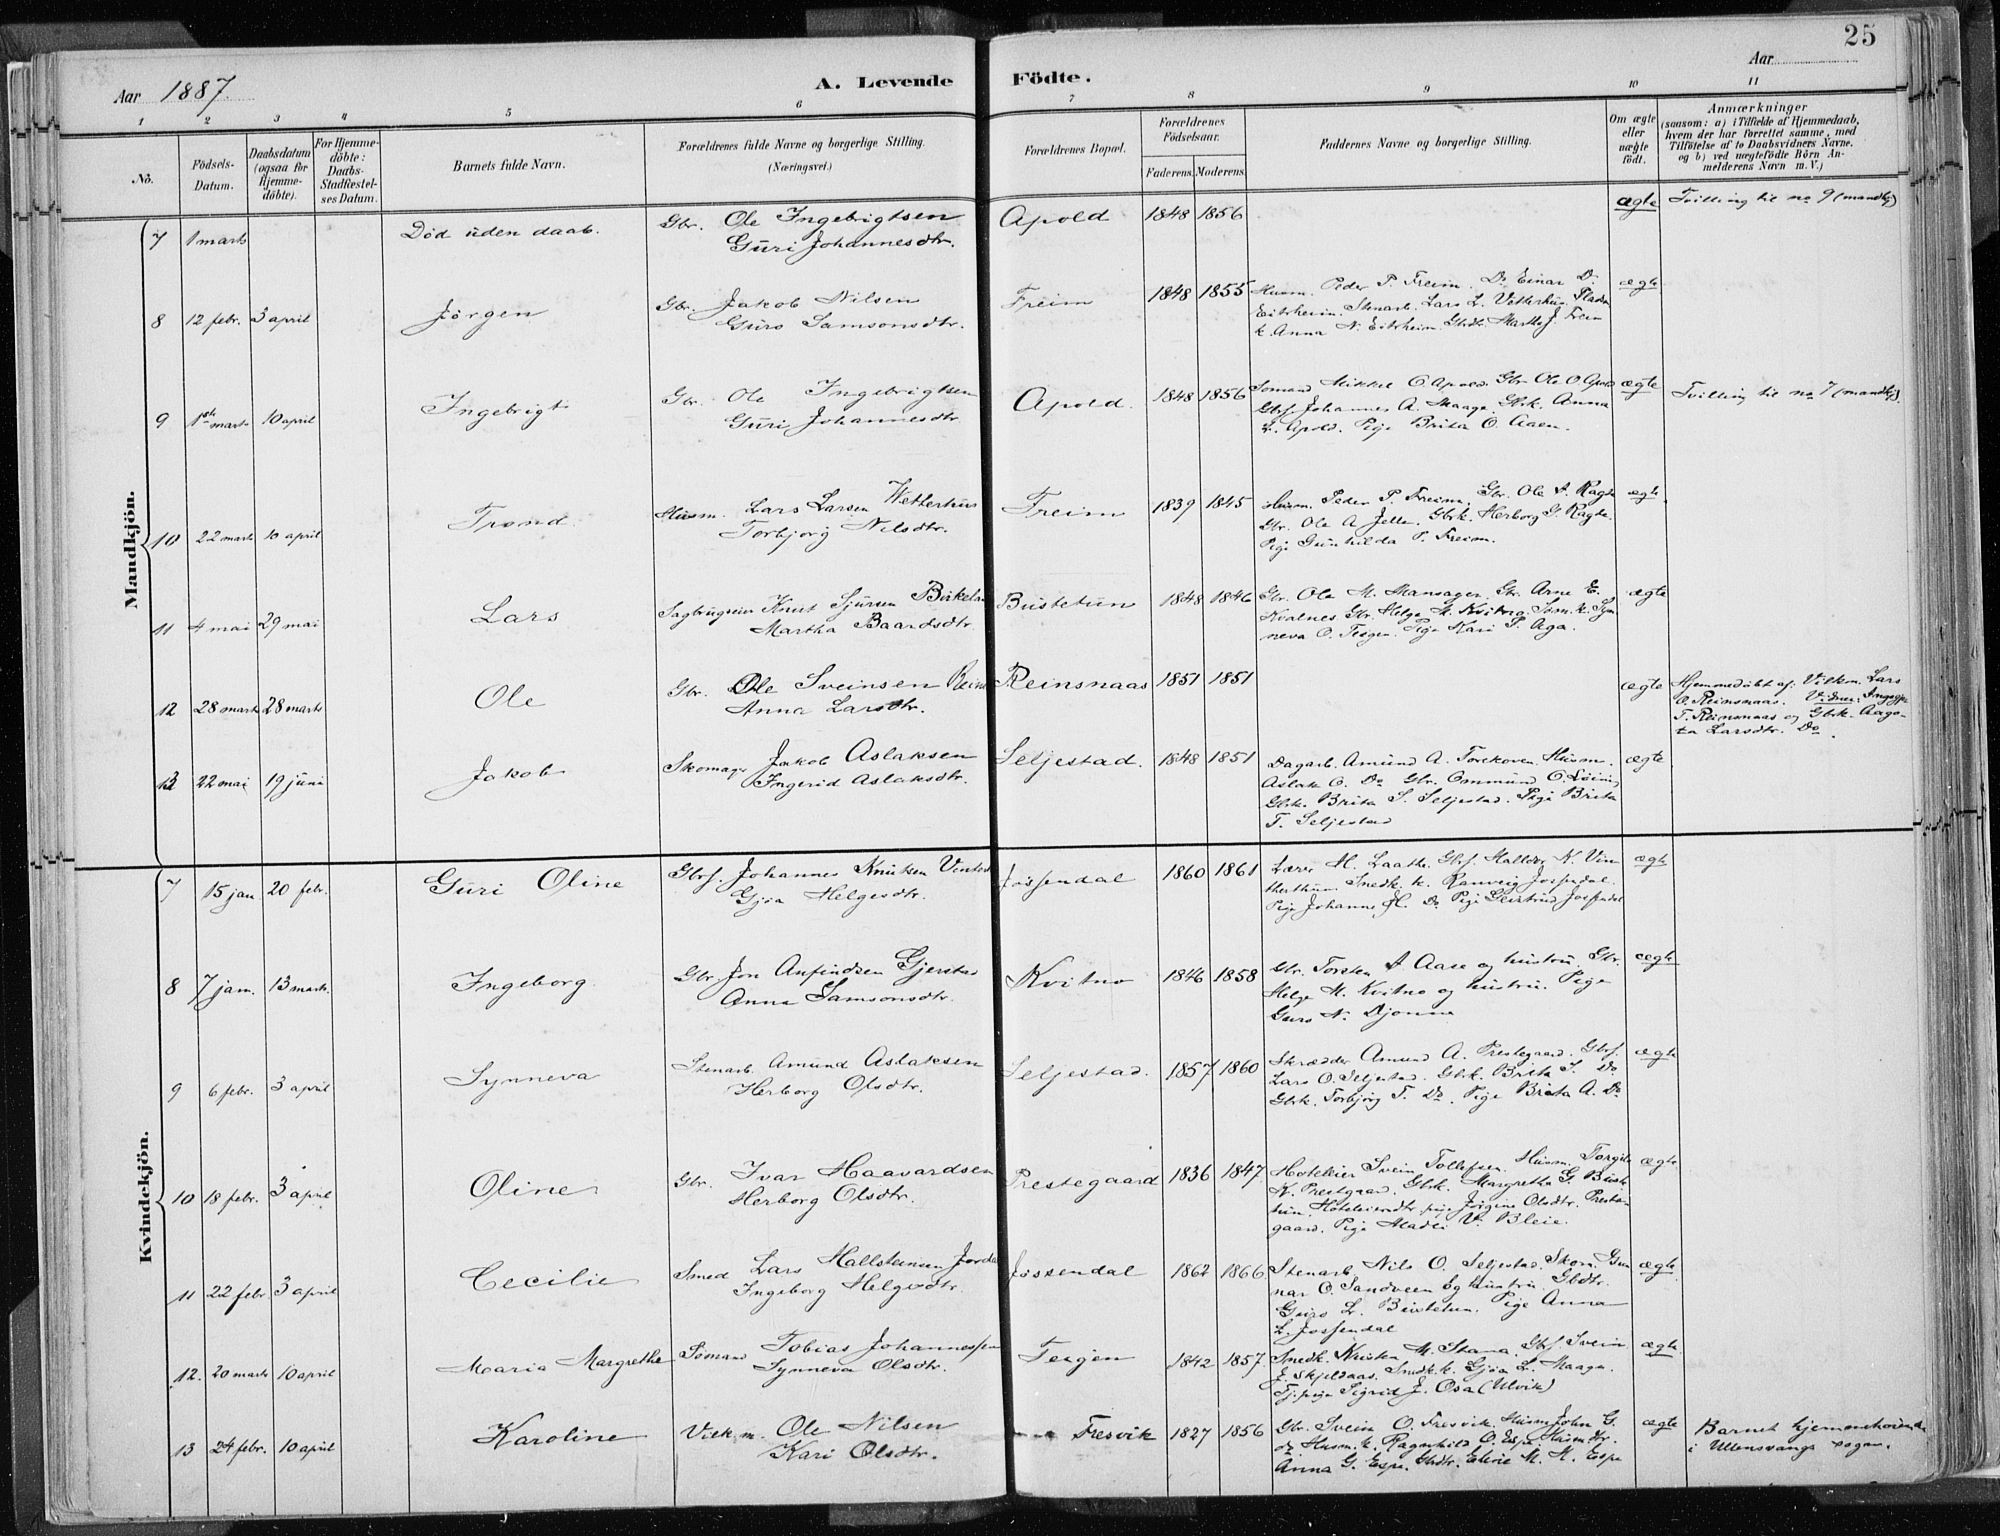 25
Aar 1887.
A. Levende
Födte.
Aar
1 2 3 4 5 6 7 8 9 10 11
No.
Födsels-Datum.
Daabsdatum (ogsaa for Hjemme-döbte).
For Hjemme-döbte: Daabs-Stadfæstel-ses Datum.
Barnets fulde Navn.
Forældrenes fulde Navne og borgerlige Stilling. (Næringsvei.)
Forældrenes Bopæl.
Forældrenes Födselsaar.
Faderens. Moderens.
Faddernes Navne og borgerlige Stilling.
Om ægte eller uægte födt.
Anmærkninger
(saasom: a) i Tilfælde af Hjemmedaab,
hvem der har forrettet samme, med
Tilföielse af to Daabsvidners Navne.
og b) ved uægtefödte Börn An-
melderens Navn m. V.)
Mandkjön.
7 1 marts Död uden daab. Gbr. Ole Ingebrigtsen Apold 1848 1856 ægte Tvilling til no 9 (mandkj)
Guri Johannesdtr.
8 12 febr. 3 april Jörgen Gbr. Jakob Nilsen Freim 1848 1855 Husm. Peder P. Freim. Do Einar D. ægte
Guro Samsonsdtr. Eitrheim. Stenarb. Lars L. Vetterhus
k. Anna N. Eitrheim. Gbrdt. Martha J. Freim
9 1ste marts 10 april Ingebrigt Gbr. Ole Ingebrigtsen Apold. 1848 1856 Sömand Mikkel O. Apold. Gbr. Ole O. Apold ægte Tvilling til no 7 (mandkj).
Guri Johannesdtr. Gbrs. Johannes A. Maage. Gbrk. Anna
L. Apold. Pige Brita O. Aaen.
10 22 marts 10 april Trond. Husm. Lars Larsen Wetterhus Freim 1839 1845 Husm. Peder P. Freim. Gbr. Ole A. Ragde ægte
Torbjorg Nilsdtr. Gbr. Ole A. Jelle. Gbrk. Herborg G. Ragde.
Pige Gunhilda P. Freim.
11 4 mai 29 mai Lars Sagbrugseier Knut Sjursen Birkeland Bustetun 1848 1846 Gbr. Ole M. Mansager. Gbr. Arne E. ægte
Martha Baardsdtr. Kvalenes Gbr. Helge M. Kvitno. Söm. k. Syn
neva O. Teigen. Pige Kari P. Aga.
12 28 marts 28 marts Ole Gbr. Ole Sveinsen Reinsnaas 1851 1851 ægte Hjemmedöbt af: Vilkm. Lars
Anna Larsdtr. O. Reinsnaas. Vidner:
T. Reinsnaas og Gbrk. Aago-
ta Larsdtr. Do.
13 22 mai 19 juni Jakob Skomager Jakob Aslaksen Seljestad. 1848 1851 Dagarb. Amund A. Husm. ægte
Ingerid Aslaksdtr. Aslak O. Do Gbr. Ommund O.
Gbrk. Brita S. Seljestad. Pige Brita
T. Seljestad
Kvindekjön.
7 15 jan. 20 febr. Guri Oline Gbrs. Johannes Knutsen Jössendal 1860 1861 Lærer H. Laathe. Gbrs. Halldor K. Vin ægte
Gjöa Helgesdtr. therthun. Snedk. k. Ranveig Jössendal.
Pige Johanne H. Do Pige Geirtrud Jössendal
8 7 jan. 13 marts Ingeborg Gbr. Jon Anfindsen Gjerstad Kvitno 1846 1858 Gbr. Torsten A. Aase og hustru. Gbr. ægte
Anna Samsonsdtr. Helge M. Kvitno og hustru. Pige
Guro N. Djonne
9 6 febr. 3 april Synneva Stenarb. Amund Aslaksen Seljestad. 1857 1860 Skrædder Amund A. Prestegaard. Gbrs. ægte
Herborg Olsdtr. Lars O. Seljestad. Gbrk. Brita S. Do
Gbrk. Torbjörg T. Do. Pige Brita A. Do
10 18 febr. 3 april Oline Gbr. Ivar Haavardsen Prestegaard 1836 1847 Hoteleier Svein Tollefsen. Husm. Torgils ægte
Herborg Olsdtr. K. Prestgaard. Gbrk. Margretha G. Bust
tun. Hoteleierdtr. pige Jörgine Olsdtr. Preste-
gaard. Pige Madli V. Bleie.
11 22 febr. 3 april Cecilie Smed Lars Hallsteinsen Jordal Jössendal 1862 1866 Stenarb. Nils O. Seljestad. Skom. Gun ægte
Ingeborg Helgesdtr. nar O. Sandveen og hustru. Gbdtr.
Guro L. Bustetun. Pige Anna
L. Jössendal
12. 20 marts 10 april Maria Margrethe Sömand Tobias Johannessen Teigen 1842 1857 Snedk. Kristen M. Stana. Gbrs. Svein ægte
Synneva Olsdtr. J. Skjeldaas. Snedk. k. Gjöa L. Maage.
Tj.pige Sigrid J. Osa (Ulvik)
13 24 febr. 10 april Karoline Vilk. m. Ole Nilsen Tresvik 1827 1856 Gbr. Svein O. Tresvik. Husm John G. ægte Barnet hjemmehörende
Kari Olsdtr. og Husm. k. Ragnhild O. Espe. Husmdtr. i Ullensvangs sogn.
Anna G. Espe. Gbrdtr. M. M. Espe